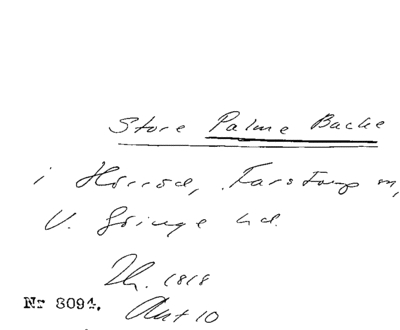 Store Palme Backe
i Hörröd, Farstorp sn,
V. Göinge hd.
Th. 1818
Nr 8094. Akt 10